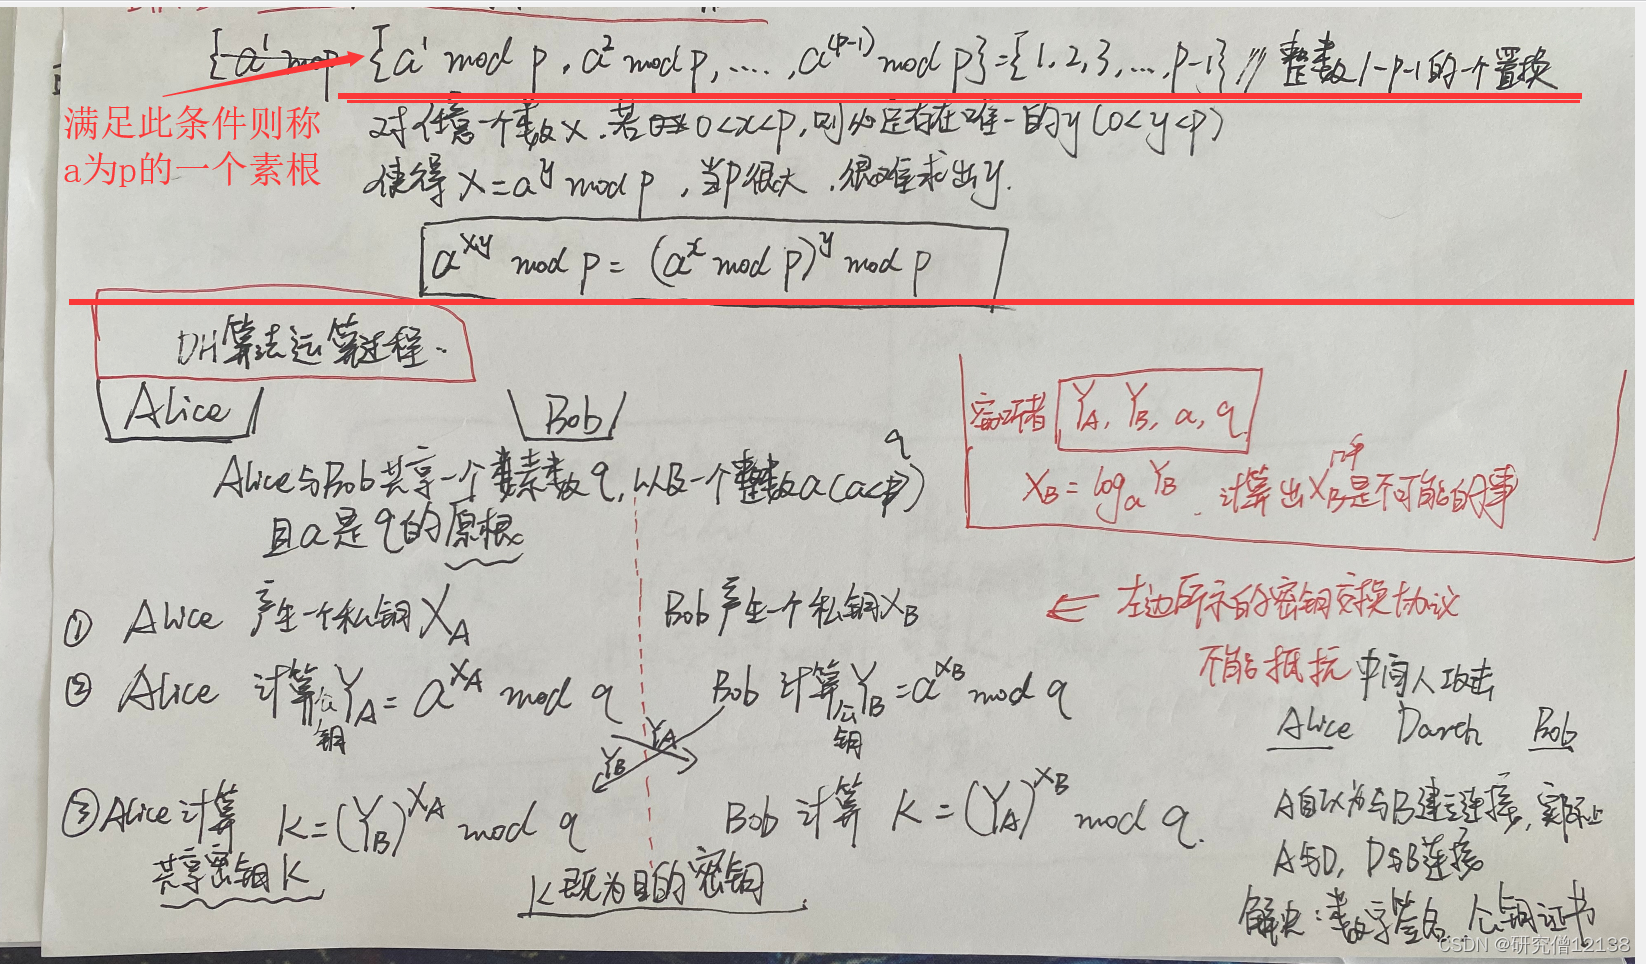 {a¹ mop {a¹ mod p , a² mod p, ...., a⁽ᵖ⁻¹⁾ mod p} = {1, 2, 3, ..., p-1} // 整数1-p-1的一个置换
满足此条件则称
a为p的一个素根
对任意一个数x, 若 0<x<p, 则必定存在唯一的y (0<y<p)
使得 x = a^y mod p , 当p很大, 很难求出y.
a^xy mod p = (a^x mod p)^y mod p
DH算法运算过程.
Alice Bob
窃听者 Y_A, Y_B, a, q
Alice与Bob共享一个素数q, 以及一个整数a (a< q)
且a是q的原根
X_B = log_a Y_B . 计算出X_B 几乎是不可能的事
① Alice 产生一个私钥X_A Bob产生一个私钥X_B
② Alice 计算公钥Y_A = a^X_A mod q Bob 计算公钥Y_B = a^X_B mod q
Y_B Y_A
③ Alice 计算 K = (Y_B)^X_A mod q Bob 计算 K = (Y_A)^X_B mod q.
共享密钥K K既为目的密钥
← 左边所示的密钥交换协议
不能抵抗中间人攻击
Alice Darth Bob
A自以为与B建立连接, 实际上
A与D, D与B连接
解决: 数字签名, 公钥证书
CSDN @研究僧12138